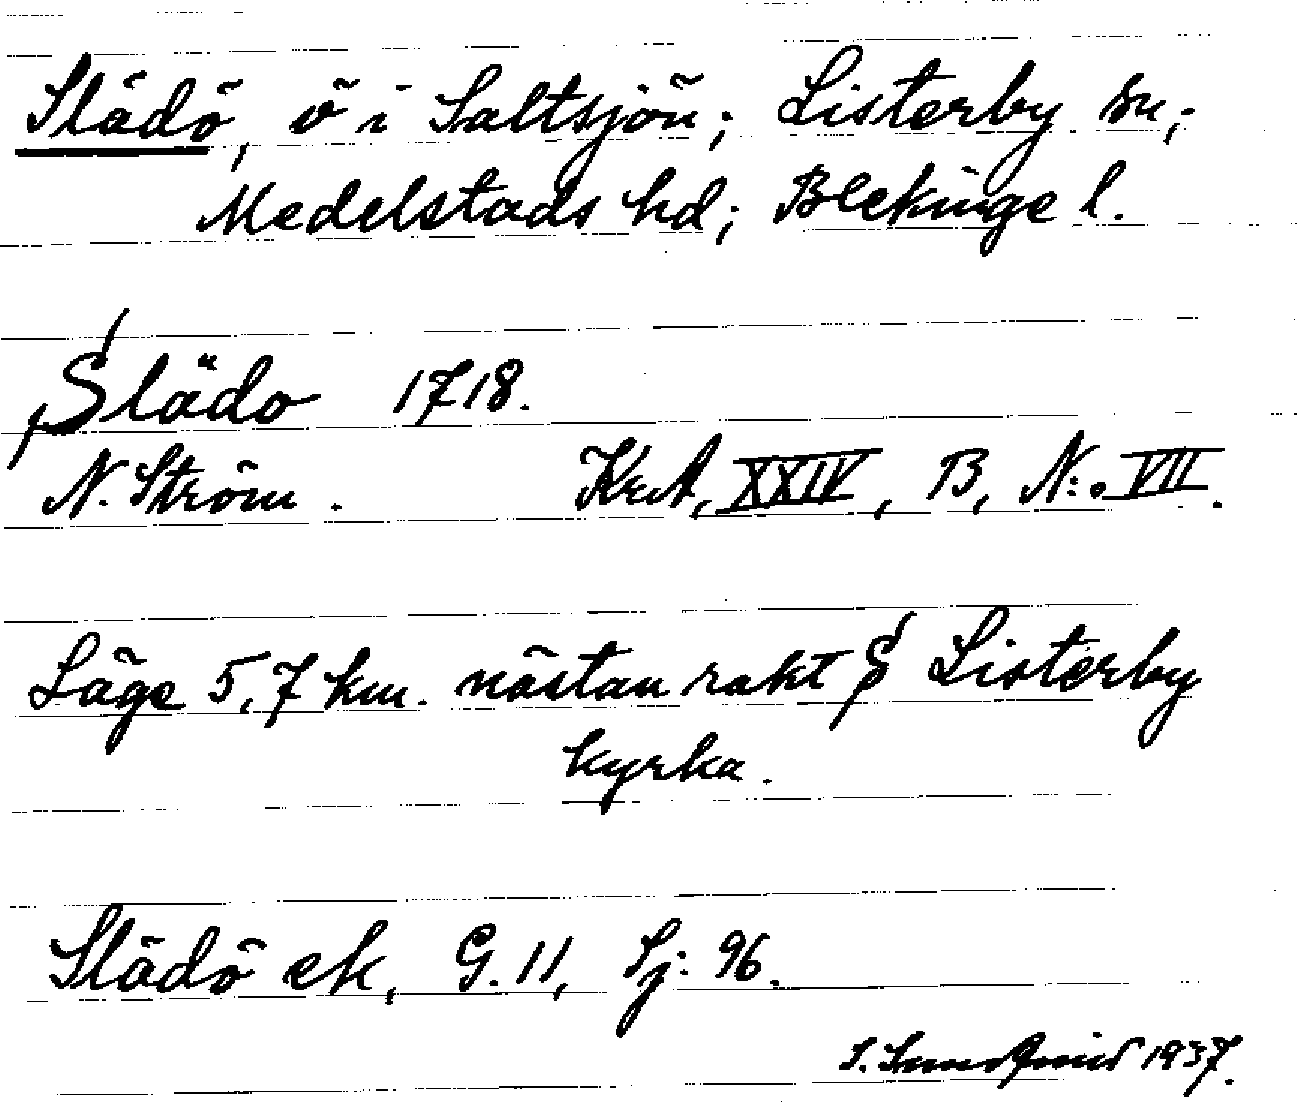 Slädö, ö i Saltsjön; Listerby sn;
Medelstads hd; Blekinge l.
Slädo 1718.
N. Ström. KrA, XXIV, B, N:o VII.
Läge 5,7 km. nästan rakt S Listerby
kyrka.
Slädö ek, G. 11, Sj: 96.
S. 1937.